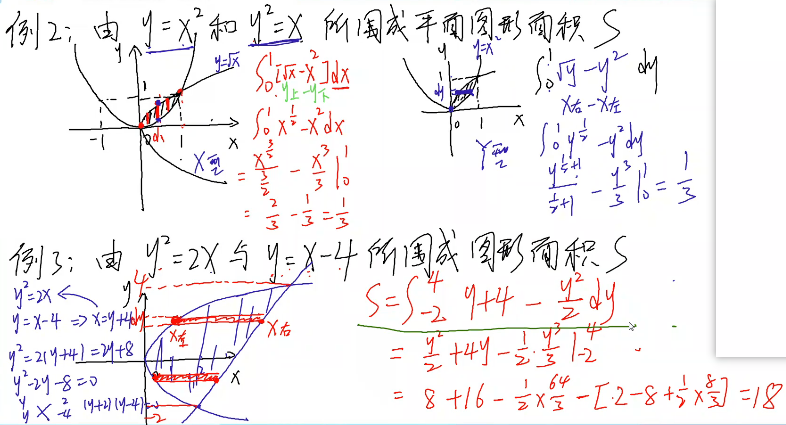 例2: 由 y=x² 和 y²=x 所围成平面图形面积 S
y
y=√x
1
0
1
-1
dx
x
X型
∫₀¹[√x-x²]dx
y上-y下
∫₀¹ x^{1/2}-x²dx
= x^{3/2}/(3/2) - x³/3 |₀¹
= 2/3 - 1/3 = 1/3
y
y=x²
1
dy
0
1
x
Y型
∫₀¹ √y-y² dy
x右-x左
∫₀¹ y^{1/2}-y²dy
y^{1/2+1}/(1/2+1) - y³/3 |₀¹ = 1/3
例3: 由 y²=2x 与 y=x-4 所围成图形面积 S
y²=2x
y=x-4 => x=y+4
y²=2(y+4)=2y+8
y²-2y-8=0
y 2
y -4
(y+2)(y-4)=0
y
4
dy
x左
x右
x
-2
S=∫₋₂⁴ y+4 - y²/2 dy
= y²/2+4y-1/2·y³/3 |₋₂⁴
= 8+16-1/2×64/3-[2-8+1/2×8/3]=18